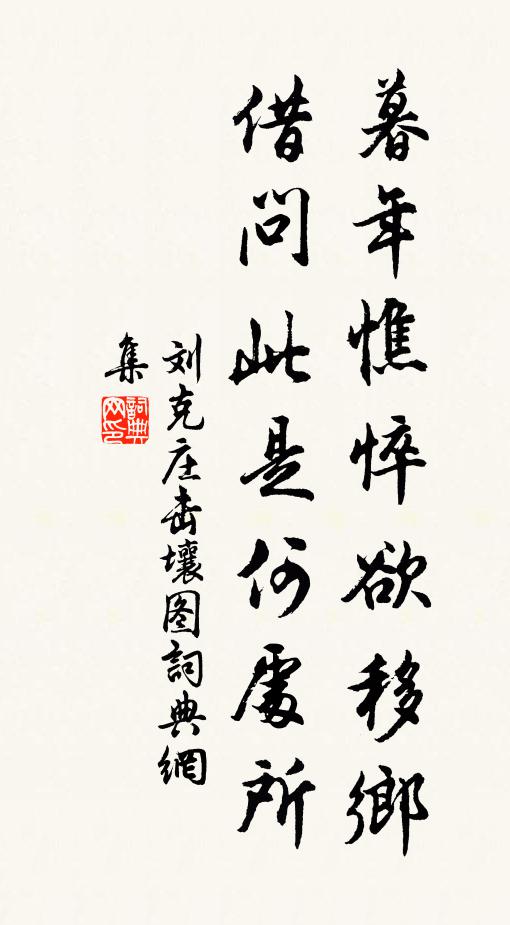 暮年憔悴欲移鄉
借問此是何處所
刘克庄击壤图詞典網
集
詞典網印